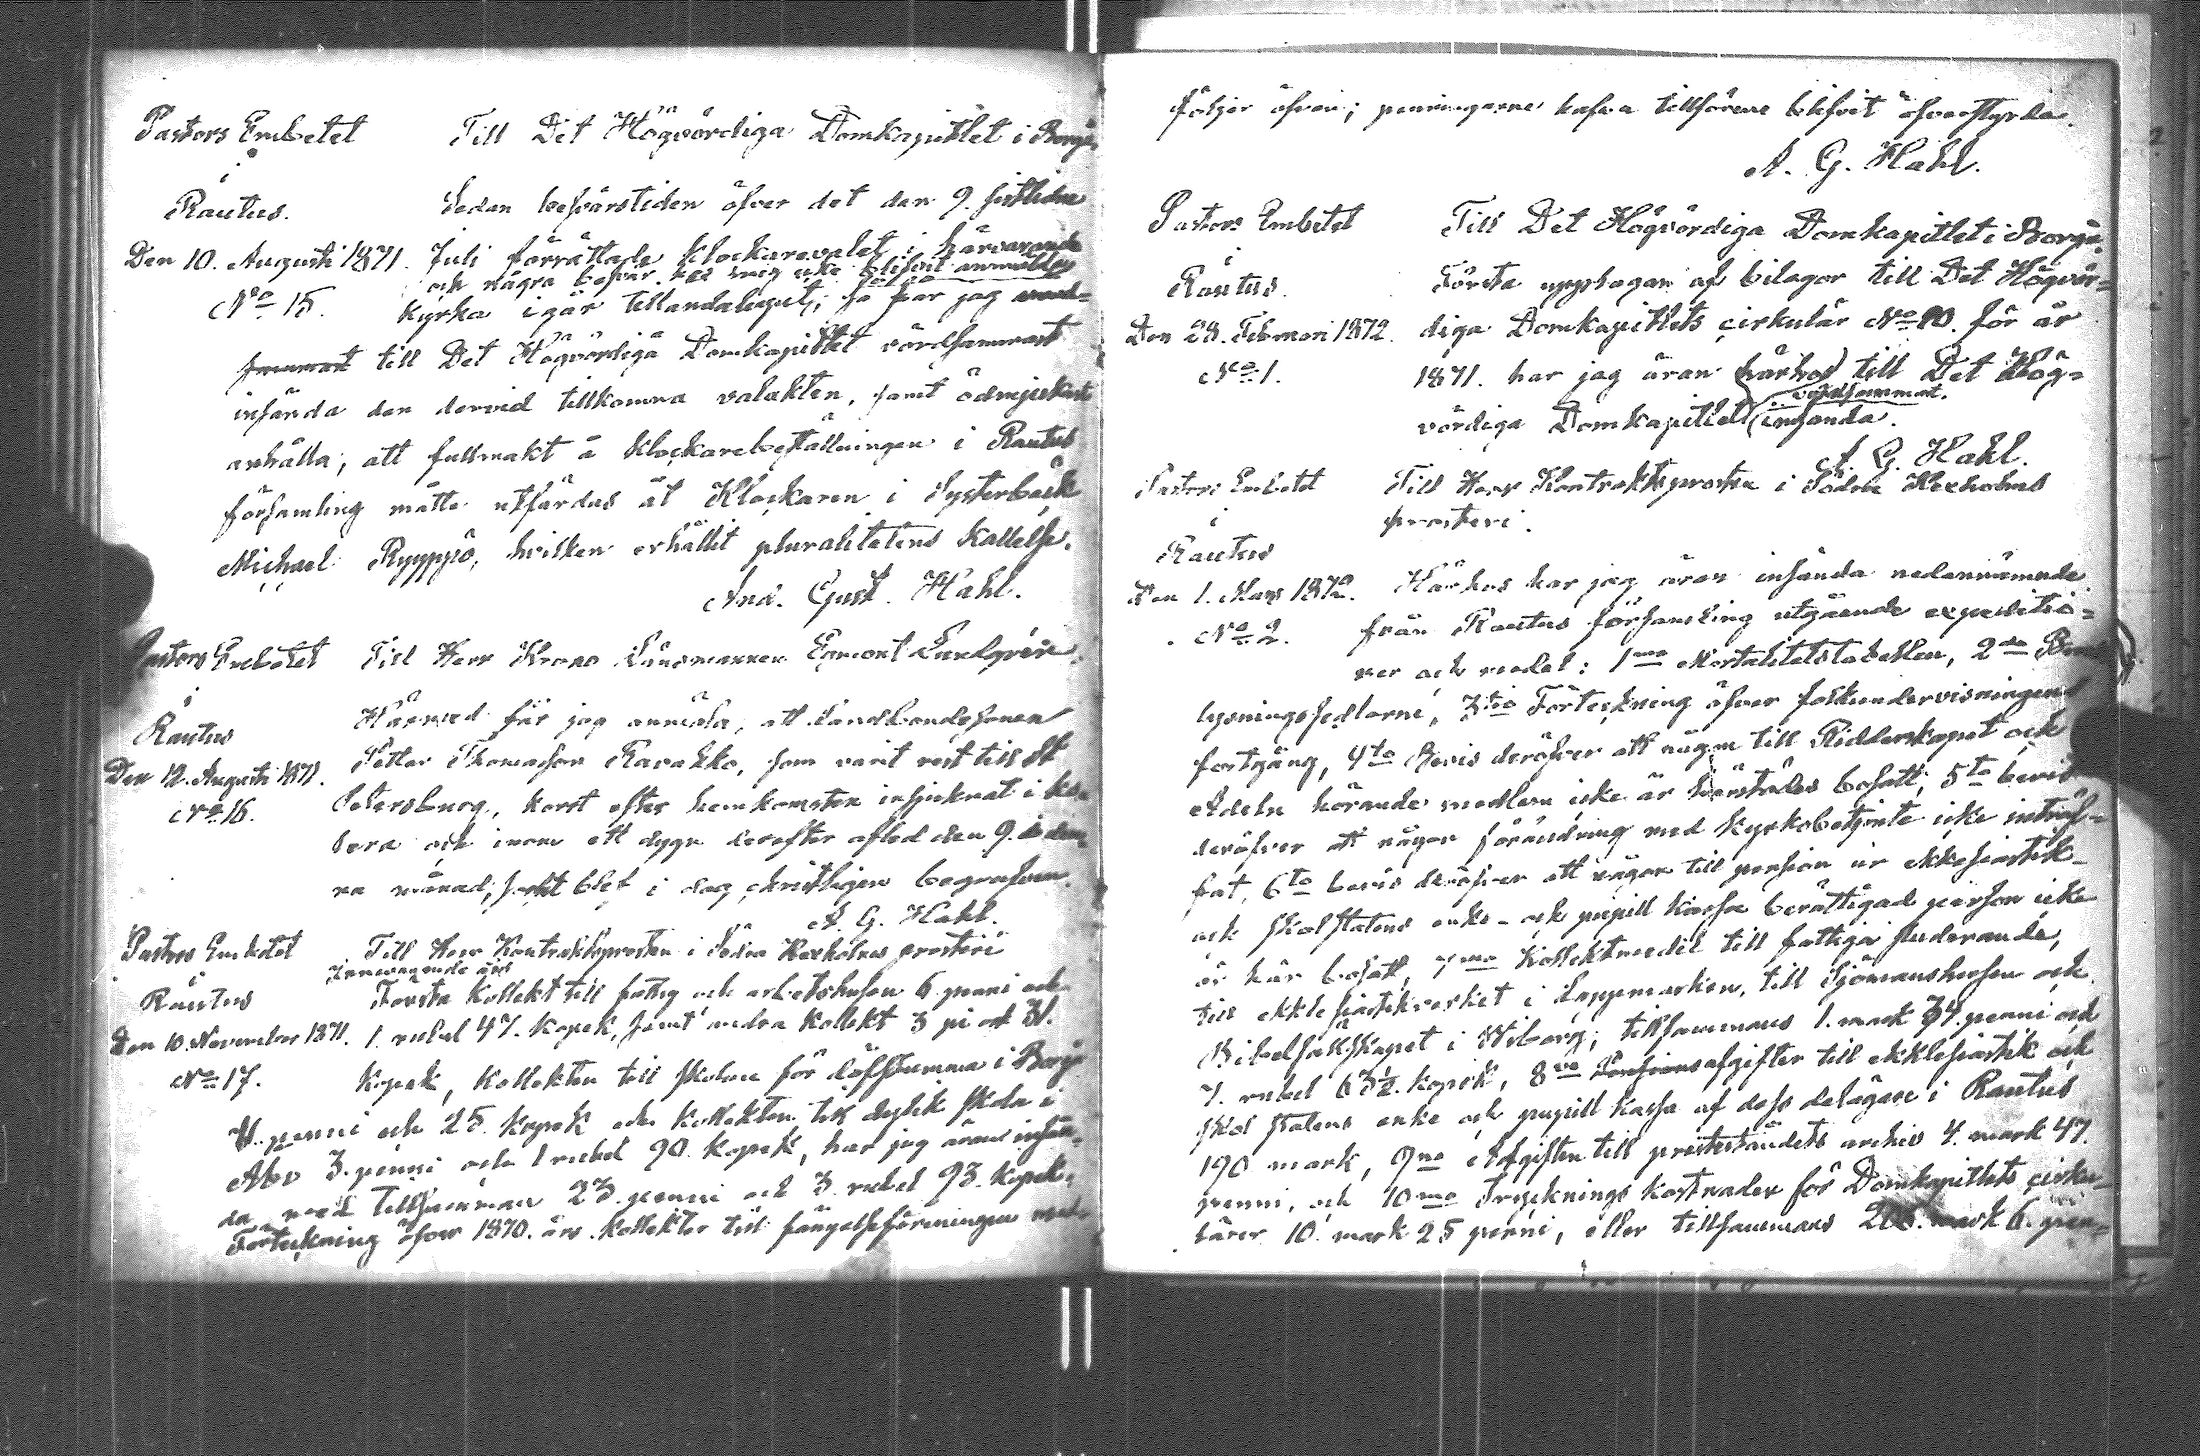 Pastors Embetet
i
Rautus.
Den 10. Augusti 1871.
No 15.
Till Det Högvördiga Domkapitlet i Borgå.
Sedan besvärstiden öfver det den 9. sistlidne
Juli förrättade klockarevalet i härvarande
och några besvär hos mig icke blifvit anmälda,
kyrka i går tilländalupit, så får jag
till Det Högvördiga Domkapitlet vördsammast
insända den dervid tillkomna valakten, samt ödmjukast
anhålla, att fullmakt å klockarebeställningen i Rautus
församling måtte utfärdas åt Klockaren i Systerbäck
Michael Ryyppö, hvilken erhållit pluralitetens kallelse.
And. Gust. Hahl.
Pastors Embetet
i
Rautus
Den 12. Augusti 1871.
No 16.
Till Herr Krono Länsmannen Egmont Lundqvist.
Härmed får jag anmäla, att Landbondesonen
Petter Thomasson Ravakko, som varit rest till St
Petersburg, korst efter hemkomsten insjuknat i ko-
lera och inom ett dygn derefter afled den 9. i den-
na månad, samt blef i dag christligen begrafven.
A. G. Hahl.
Pastors Embetet
i
Rautus
Den 10. November 1871.
No 17.
Till Herr Kontraktsprosten i Södra Kexholms prosteri
Innevarande års
Första Kollekt till fattig och arbetshusen 6 penni och
1. rubel 47. kopek, samt andra kollekt 3 pi och 31.
kopek, kollekten till skolan för döfstumma i Borgå
11. penni och 25. kopek och kollekten till dylik skola i
Åbo 3. penni och 1 rubel 90. kopek, har jag äran insän-
da med tillsamman 23. penni och 3. rubel 93. kopek.
Förteckning öfver 1870. års kollekter till fängelseföreningen
följer äfven; penningarne hafva tillförene blifvit öfverstyrda.
A. G. Hahl.
Pastors Embetet
i
Rautus.
Den 28. Februari 1872.
No 1.
Till Det Högvördiga Domkapitlet i Borgå.
Första upplagan af bilagor till Det Högvör-
diga Domkapitlets cirkulär No 80. för år
1871. har jag äran härhos till Det Hög-
vördsammast.
vördiga Domkapitlet insända.
A. G. Hahl.
Pastors Embetet
i
Rautus
Den 1. Mars 1872.
No 2.
Till Herr Kontraktsprosten i Södra Kexholms
prosteri.
Härhos har jag äran insända nedannämnde
från Rautus församling utgående expeditio-
ner och medel: 1mo Mortalitetstabellen, 2do
lysningssedlarne, 3tio Förteckning öfver folkundervisningens
fortgång, 4to Bevis deröfver att någon till Ridderskapet och
Adeln hörande medlem icke är härstädes bosatt, 5to bevis
deröfver att någon förändring med kyrkobetjente icke inträf-
fat, 6to bevis deröfver att någon till pension ur ekklesiastik-
och skolstatens enke- och pupill kassa berättigad person icke
är här bosatt, 7mo Kollektmedel till fattiga studerande,
till ekklesiastikverket i Lappmarken, till Sjömanshusen och
Bibelsällskapet i Wiborg, tillsammans 1. mark 34. penni och
7. rubel 63½. kopek, 8vo Pensionsafgifter till ekklesiastik och
skol statens enke och pupill kassa af dess delägare i Rautus
190 mark, 9no Afgiften till presteståndets archiv 4. mark 47.
penni, och 10mo Tryckningskostnader för Domkapitlets cirku-
lärer 10. mark 25 penni, eller tillsammans 206. mark 6. pen-